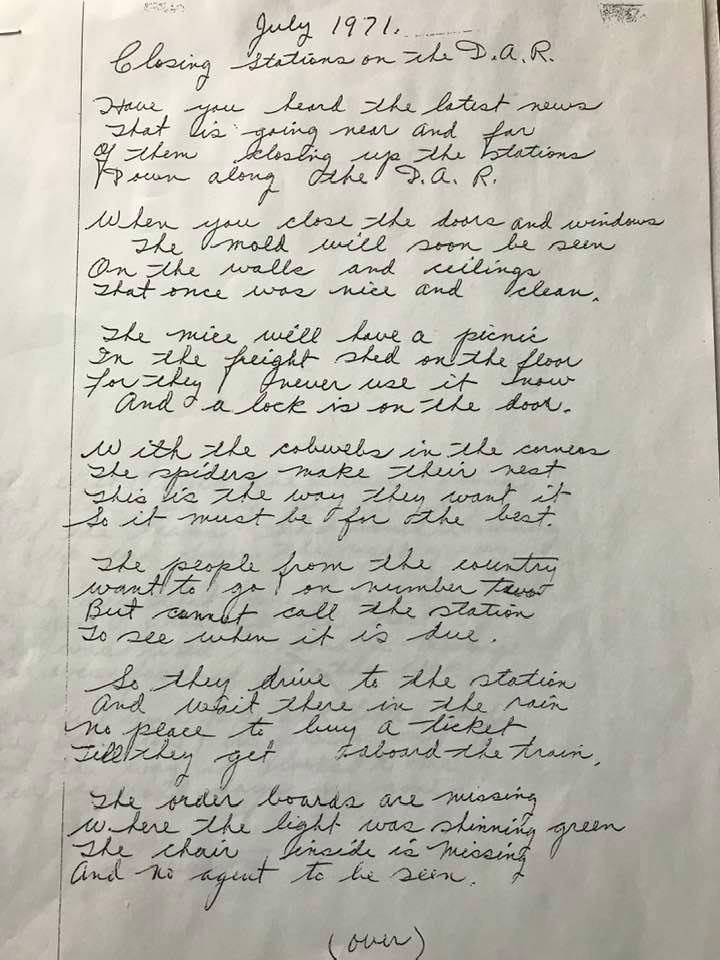 July 1971.
Closing Stations on the D.A.R.
Have you heard the latest news
That is going near and far
Of them closing up the stations
Down along the D.A.R.
When you close the doors and windows
The mold will soon be seen
On the walls and ceilings
That once was nice and clean.
The mice will have a picnic
In the freight shed on the floor
For they never use it now
And a lock is on the door.
With the cobwebs in the corners
The spiders make their nest
This is the way they want it
So it must be for the best.
The people from the country
want to go on number two
But cannot call the station
To see when it is due.
So they drive to the station
And wait there in the rain
No place to buy a ticket
Till they get aboard the train.
The order boards are missing
Where the light was shinning green
The chair inside is missing
And no agent to be seen.
(over)